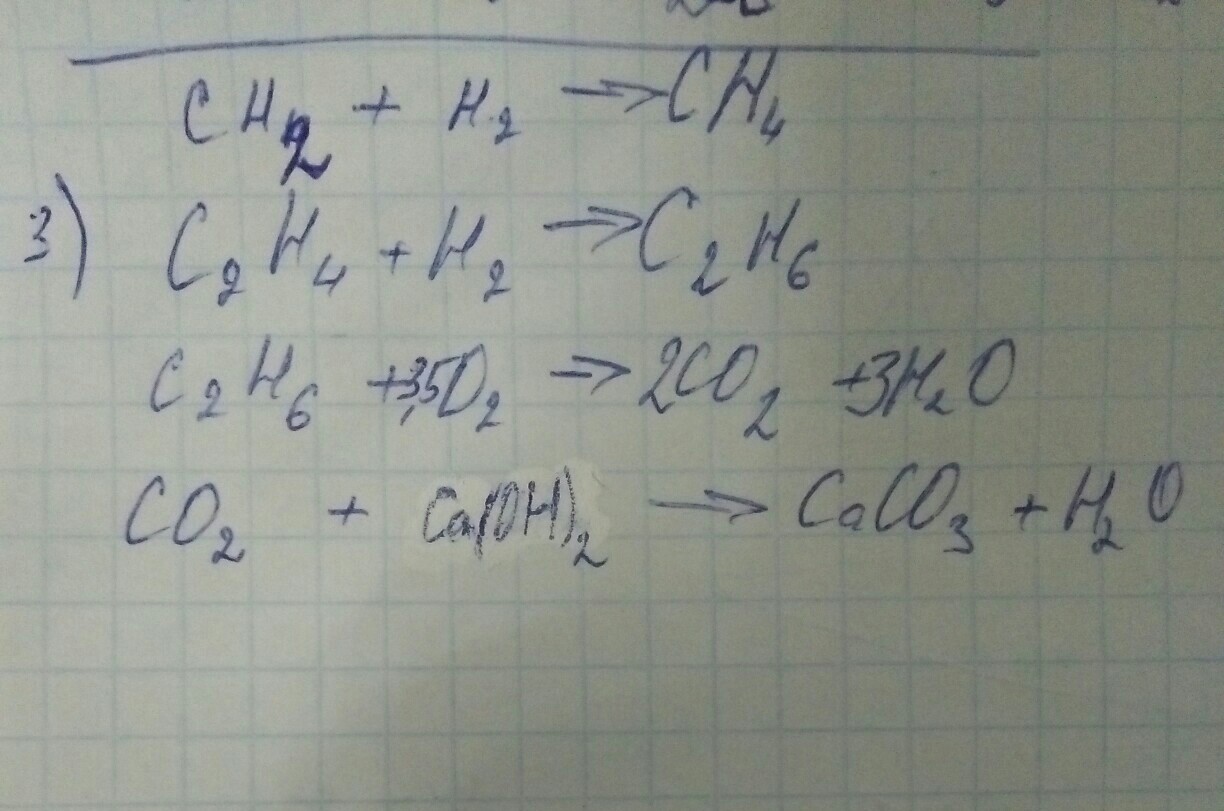 CH₂ + H₂ → CH₄
3) C₂H₄ + H₂ → C₂H₆
C₂H₆ + 3,5O₂ → 2CO₂ + 3H₂O
CO₂ + Ca(OH)₂ → CaCO₃ + H₂O